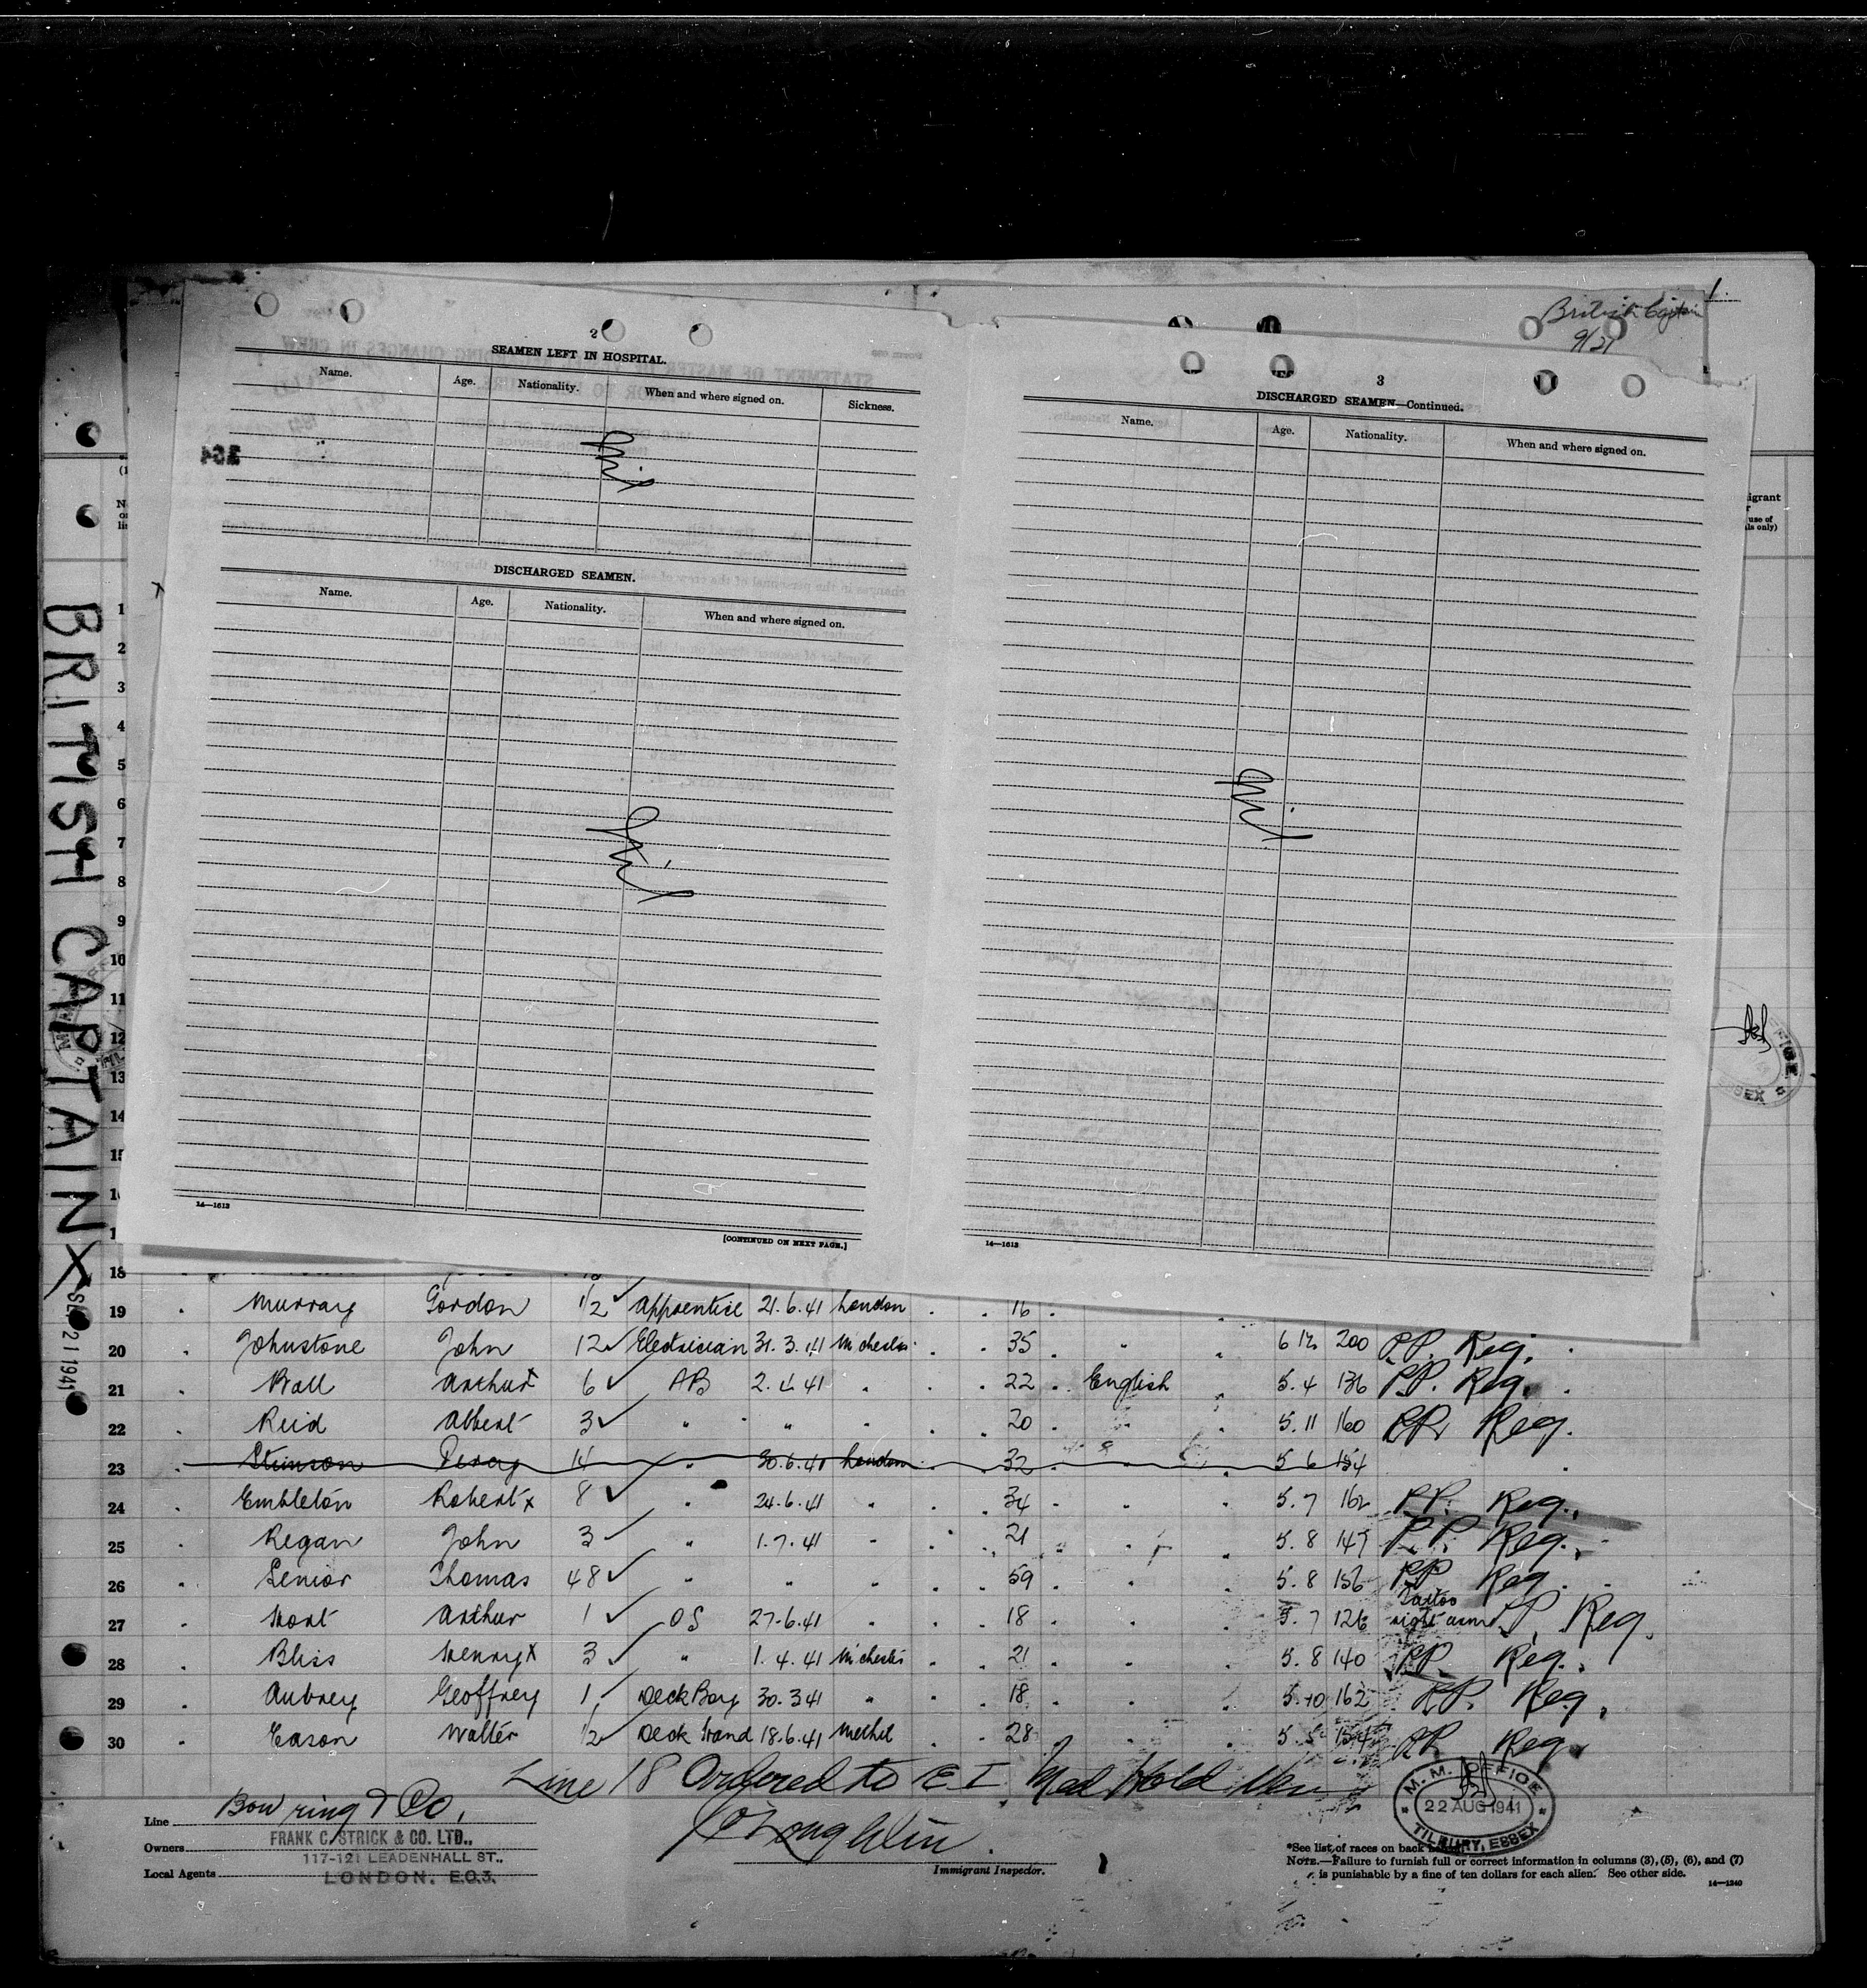 British Captain
9/21
2
SEAMEN LEFT IN HOSPITAL.
Name. Age. Nationality. When and where signed on. Sickness.
Nil
DISCHARGED SEAMEN.
Name. Age. Nationality. When and where signed on.
Nil
14—1613
[CONTINUED ON NEXT PAGE.]
3
DISCHARGED SEAMEN—Continued.
Name. Age. Nationality. When and where signed on.
Nil
14—1613
BRITISH CAPTAIN X
SEP 21 1941
1
2
3
4
5
6
7
8
9
10
11
12
13
14
18
19 Murray Gordon 1/2 ✓ Apprentice 21.6.41 London 16
20 Johnstone John 12 ✓ Electrician 31.3.41 M'chester 35 " 6 200 P.P. Reg.
21 Ball Arthur x 6 ✓ AB 2.4.41 " 22 English 5.4 136 P.P. Reg.
22 Reid Albert 3 ✓ " " " 20 " 5.11 160 P.P. Reg.
23 Stimson Percy 14 " 30.6.41 London 32 5 6 154
24 Embleton Robert x 8 ✓ " 24.6.41 " 34 " 5.7 162 P.P. Reg.
25 Regan John 3 ✓ " 1.7.41 " 21 " 5.8 147 P.P. Reg.
26 Senior Thomas 48 ✓ " " " 59 " 5.8 156 P.P. Reg.
27 Arthur 1 ✓ OS 27.6.41 " 18 " 5.7 126 Tattoo right arm P.P. Reg.
28 Bliss Henry x 3 ✓ " 1.4.41 M'chester 21 " 5.8 140 P.P. Reg.
29 Aubrey Geoffrey 1 ✓ Deck Boy 30.3.41 " 18 " 5.10 162 P.P. Reg.
30 Eason Walter 1/2 ✓ Deck Hand 18.6.41 Methil 28 " 5.5 154 P.P. Reg.
Line 18 Ordered to E I Med Hold
Line Bowring & Co.
Owners FRANK C. STRICK & CO. LTD.,
117-121 LEADENHALL ST.,
Local Agents LONDON, E.C.3.
O'Loughlin
Immigrant Inspector.
M.M. OFFICE
22 AUG 1941
TILBURY, ESSEX
*See list of races on back
NOTE.—Failure to furnish full or correct information in columns (3), (5), (6), and (7)
is punishable by a fine of ten dollars for each alien. See other side.
14—1240